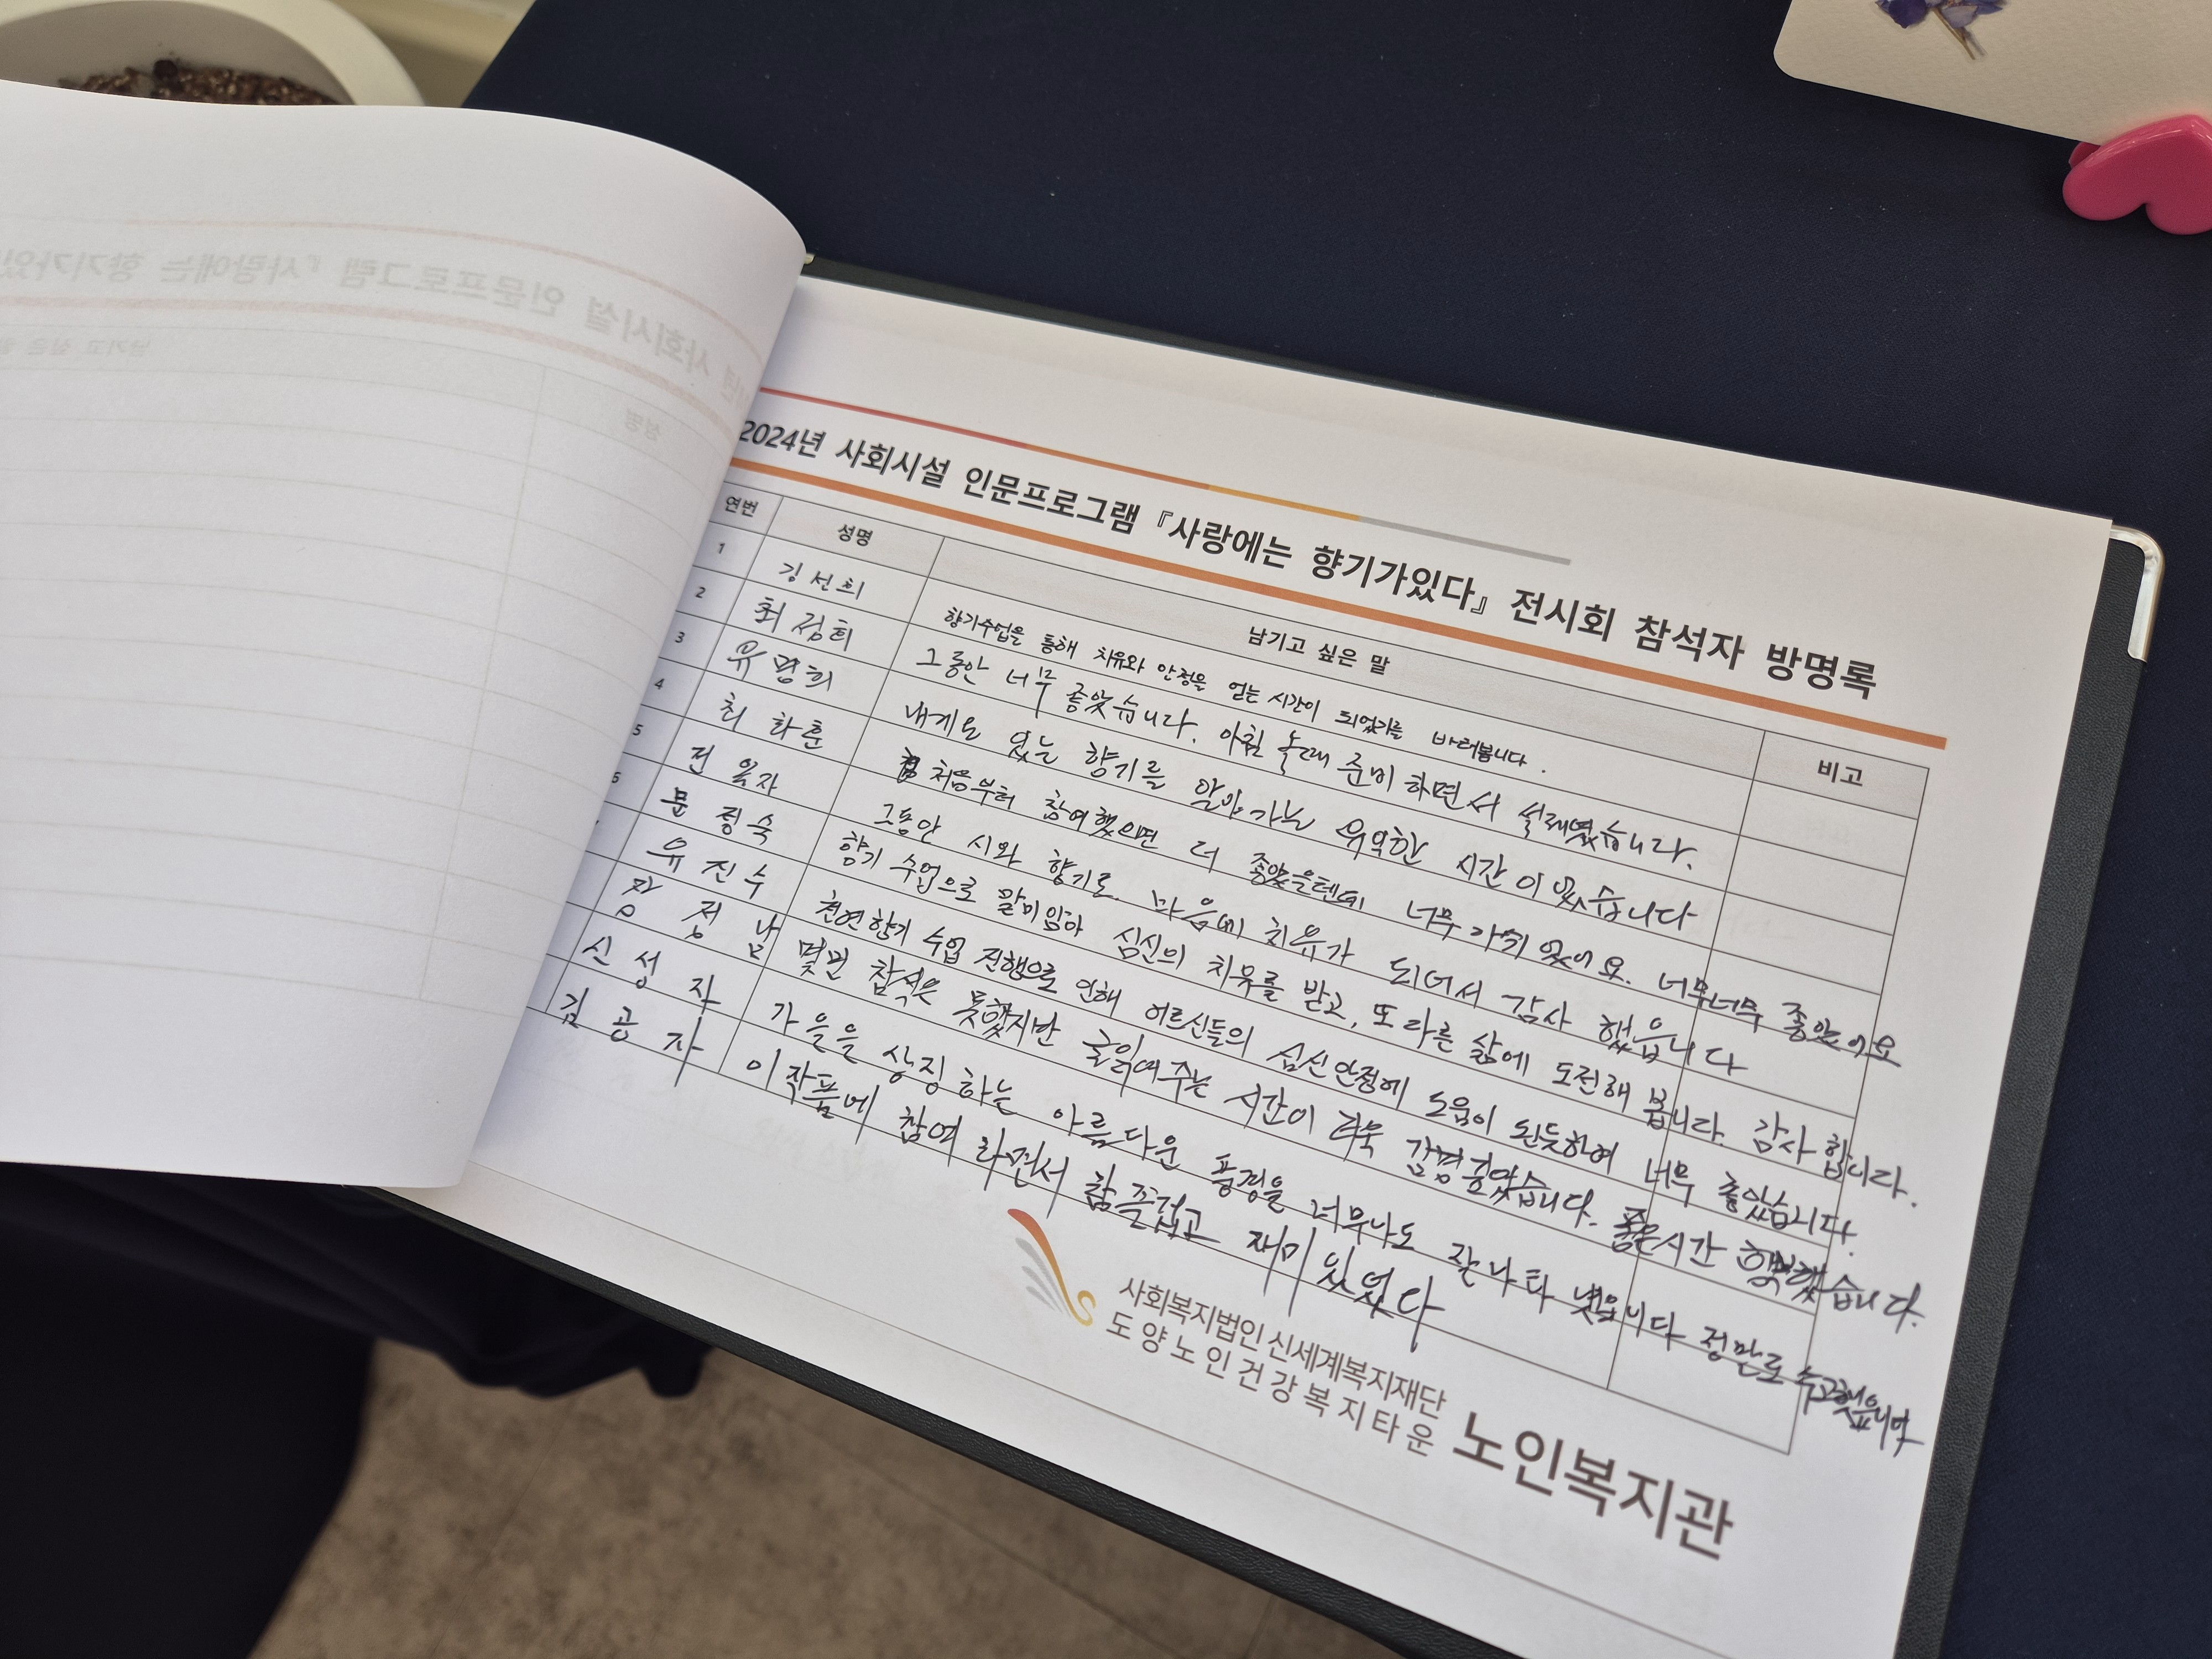 2024년 사회시설 인문프로그램 『사랑에는 향기가있다』 전시회 참석자 방명록
연번 성명 남기고 싶은 말 비고
1 김선희 향기수업을 통해 치유와 안정을 얻는 시간이 되었기를 바래봅니다.
2 최정희 그동안 너무 좋았습니다. 아침 준비하면서 설레였습니다.
3 유명희 내게도 있는 향기를 알아가는 유익한 시간이 있습니다
4 최화춘 처음부터 참여했으면 더 좋았을텐데 너무 있어요. 너무너무 좋았어요
5 전옥자 그동안 시와 향기로 마음에 치유가 되어서 감사 했읍니다
6 문정숙 향기 수업으로 말미암아 심신의 치유를 받고, 또 다른 삶에 도전해 봅니다. 감사합니다.
유진수 천연향기 수업 진행으로 인해 어르신들의 심신안정에 도움이 된듯하여 너무 좋았습니다.
장정남 몇번 참석은 못했지만 글읽어주는 시간이 더욱 습니다. 좋은시간 행복했습니다.
신성자 가을을 상징하는 아름다운 풍경을 너무나도 잘 나타 냇읍니다 정말로 수고했읍니다
김공자 이 작품에 참여 하면서 참 즐겁고 재미있었다
사회복지법인 신세계복지재단
도양노인건강복지타운 노인복지관